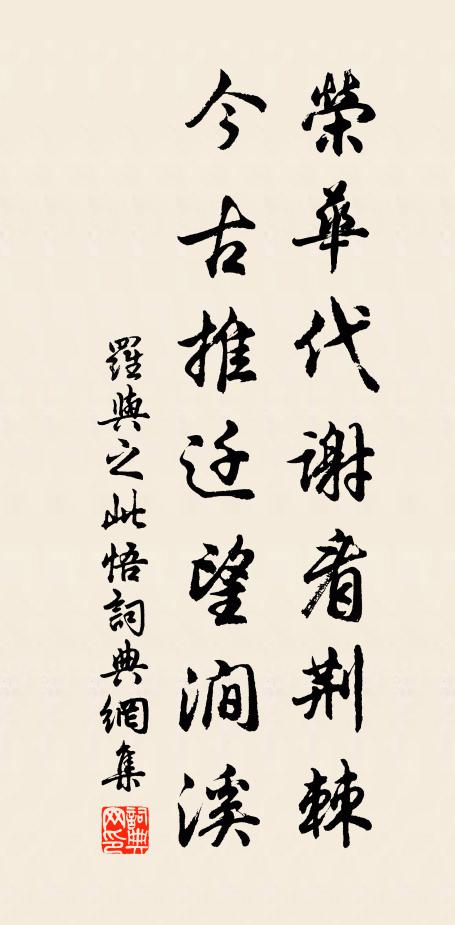 榮華代谢看荆棘
今古推迁望澗溪
羅與之此悟詞典網集
詞典网印